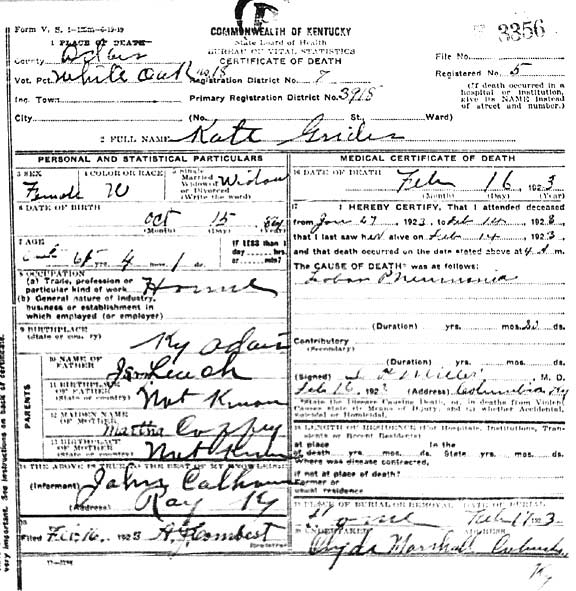 Form V. S.
COMMONWEALTH OF KENTUCKY
3356
1 PLACE OF DEATH
State Board of Health
BUREAU OF VITAL STATISTICS
County Adair
CERTIFICATE OF DEATH
File No.
Vot. Pct. White Oak No 18 Registration District No. 7
Registered No. 5
Inc. Town Primary Registration District No. 3918
(If death occurred in a
hospital or institution,
give its NAME instead
of street and number.)
City (No. St., Ward)
2 FULL NAME Kate Grider
PERSONAL AND STATISTICAL PARTICULARS
3 SEX
Female
4 COLOR OR RACE
W
5 Single
Married
Widowed
or Divorced
(Write the word)
Widow
6 DATE OF BIRTH
Oct 15
(Month) (Day) (Year)
7 AGE
yrs. 4 mos. 1 ds.
IF LESS than 1
day hrs.
or min.?
8 OCCUPATION
(a) Trade, profession or
particular kind of work Home
(b) General nature of industry,
business or establishment in
which employed (or employer)
9 BIRTHPLACE
(State or country) Ky Adair
PARENTS
10 NAME OF
FATHER
Leach
11 BIRTHPLACE
OF FATHER
(State or country) Not Known
12 MAIDEN NAME
OF MOTHER Martha
13 BIRTHPLACE
OF MOTHER
(State or country)
14 THE ABOVE IS TRUE TO THE BEST OF MY KNOWLEDGE
(Informant) Calhoun
(Address) Ray Ky
15
Filed Feb 16, 1923
Registrar
MEDICAL CERTIFICATE OF DEATH
16 DATE OF DEATH
Feb 16 1923
(Month) (Day) (Year)
17 I HEREBY CERTIFY, That I attended deceased
from Jan 27, 1923, to Feb 14, 1923,
that I last saw her alive on Feb 14, 1923,
and that death occurred on the date stated above at 4 m.
The CAUSE OF DEATH* was as follows:
Lobar Pneumonia
(Duration) yrs. mos. ds.
Contributory
(Secondary)
(Duration) yrs. mos. ds.
(Signed) Miller M. D.
Feb 16 192 (Address) Columbia Ky
*State the Disease Causing Death, or, in deaths from Violent
Causes state (1) Means of Injury; and (2) whether Accidental,
Suicidal or Homicidal.
18 LENGTH OF RESIDENCE (For Hospitals, Institutions, Transients
or Recent Residents)
At place In the
of death yrs. mos. ds. State yrs. mos. ds.
Where was disease contracted,
if not at place of death?
Former or
usual residence
19 PLACE OF BURIAL OR REMOVAL DATE OF BURIAL
Home Feb 17 1923
20 UNDERTAKER ADDRESS
Clyde Marshall Columbia
Ky
very important. See instructions on back of certificate.